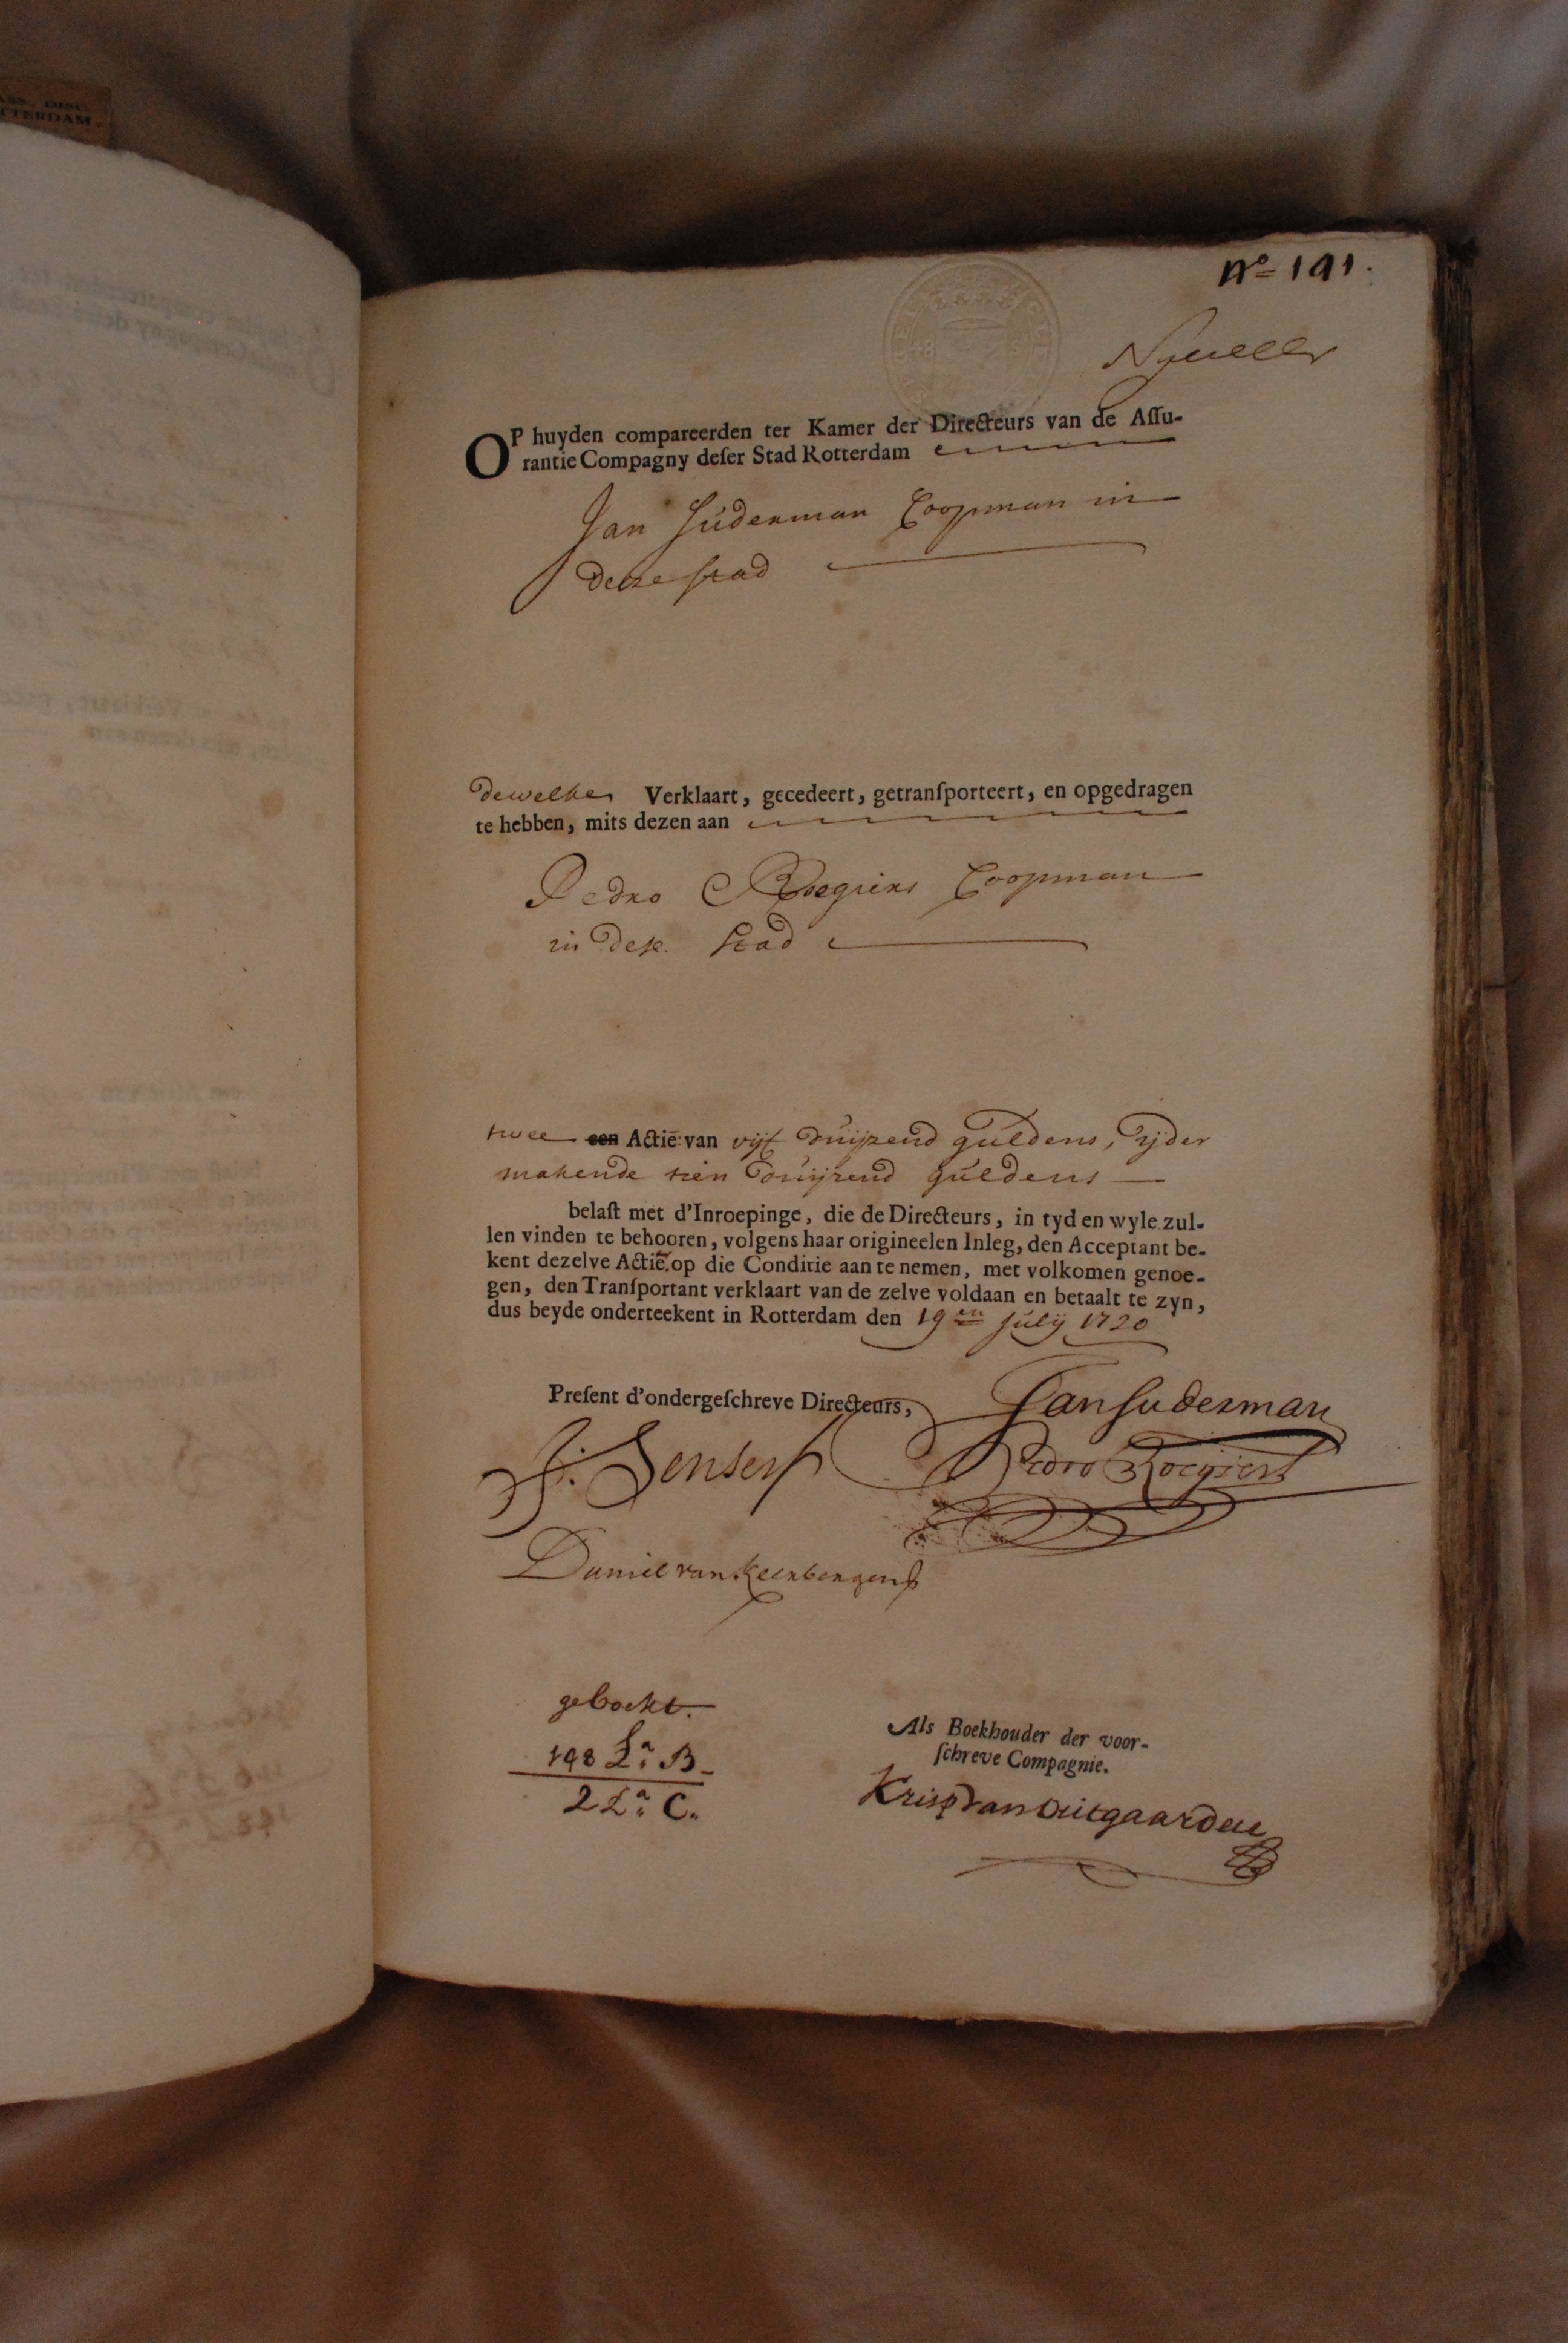 ASS. DISC.
TTERDAM.
Nº 191.
OP huyden compareerden ter Kamer der Directeurs van de Assu-
rantie Compagny deser Stad Rotterdam
Jan Suderman Coopman in
deeze stad
dewelke Verklaart, gecedeert, getransporteert, en opgedragen
te hebben, mits dezen aan
Pedro Roegiers Coopman
in dese Stad
twee een Actiē van vijf duijzend guldens, ijder
makende tien duijzend guldens
belast met d'Inroepinge, die de Directeurs, in tyd en wyle zul-
len vinden te behooren, volgens haar origineelen Inleg, den Acceptant be-
kent dezelve Actiē op die Conditie aan te nemen, met volkomen genoe-
gen, den Transportant verklaart van de zelve voldaan en betaalt te zyn,
dus beyde onderteekent in Rotterdam den 19en Julij 1720
Present d'ondergeschreve Directeurs,
Jan Suderman
J. Senserf
Pedro Roegiers
Daniel van
geboekt.
198 La. B.
2 La. C.
Als Boekhouder der voor-
schreve Compagnie.
Krisp van Uitgaarden